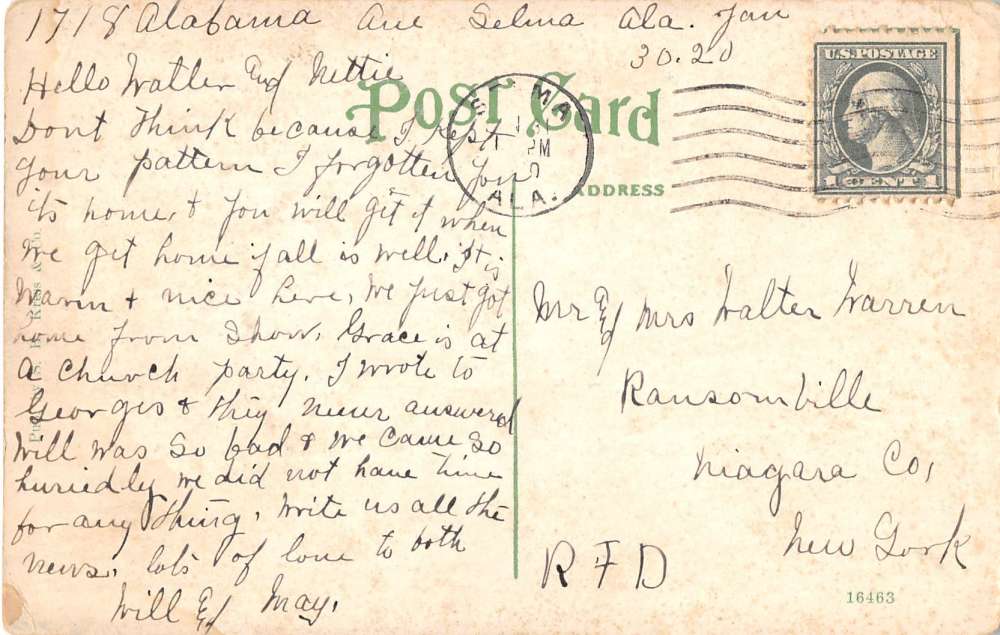 1718 Alabama Ave Selma Ala. Jan
30.20
Hello Walter and Nettie
Dont think because I kept
your pattern I forgotten you
its home, & you will get it when
we get home if all is well, it is
warm & nice here, we just got
home from Show, Grace is at
a church party. I wrote to
Georges & they never answered
Will was so bad & we came so
huriedly we did not have time
for any thing, write us all the
news, lots of love to both
Will and May.
POST CARD
ADDRESS
SELMA
PM
ALA.
U.S. POSTAGE
1 CENT 1
Mr and Mrs Walter Warren
Ransomville
Niagara Co,
New York
R F D
16463